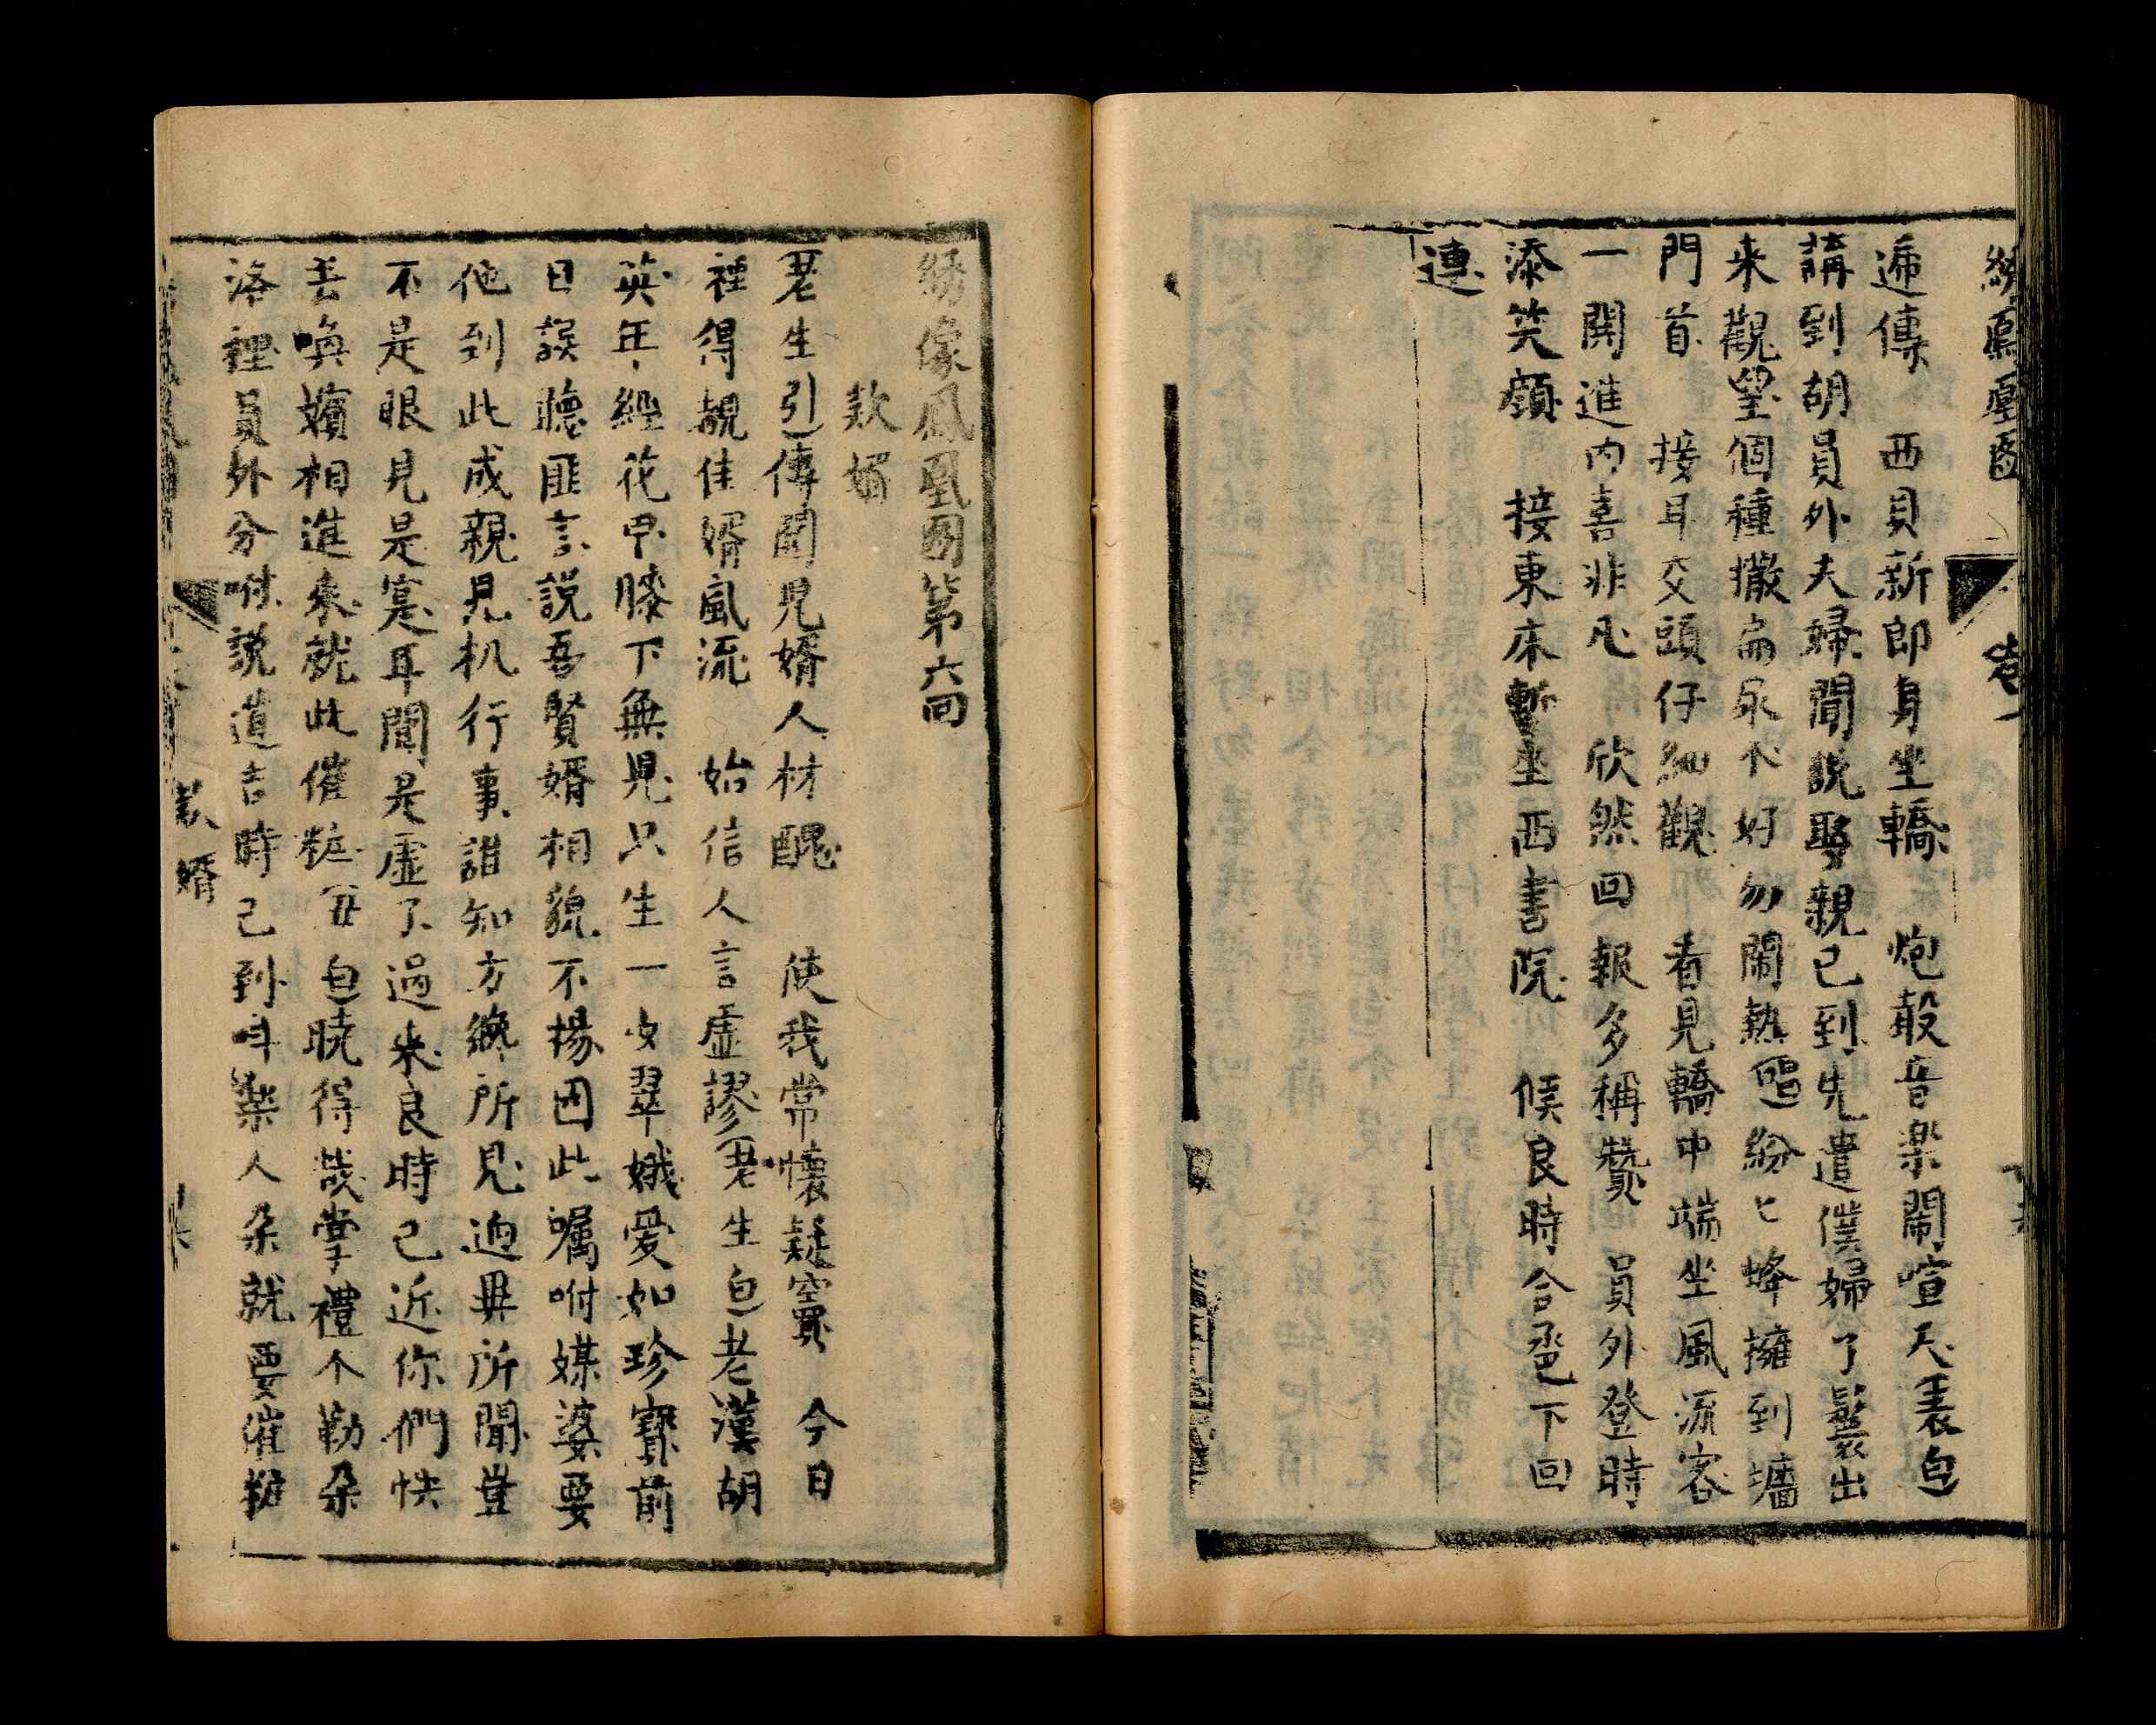 綉鳳凰圖 卷一
遞傳 西貝新郎身坐轎 炮聲音樂鬧喧天表白
講到胡員外夫婦聞説娶親已到先遣僕婦了鬟出
来觀望個種撒扁尿木好勿鬧熱白紛匕蜂擁到墻
門首 接耳交頭仔細觀 看見轎中端坐風流客
一開進内喜非凡 欣然回報多稱贊 員外登時
添笑顔 接東床暫坐西書院 候良時合卺下回
連
綉像鳳凰圖第六回
欵婿
老生引傳聞見婿人材醜 使我常懷疑竇 今日
裡得覩佳婿風流 始信人言虛謬老生白老漢胡
英年經花甲膝下無児只生一女翠娥愛如珍寳前
日誤聽匪言説吾賢婿相貌不揚因此囑咐媒婆要
他到此成親見机行事誰知方纔所見逈異所聞豈
不是眼見是寔耳聞是虛了過来良時已近你們快
去喚嬪相進来就此催粧丑白曉得哉掌禮个勒朵
洛裡員外分咐説道吉時已到叫樂人朵就要催粧
欵婿